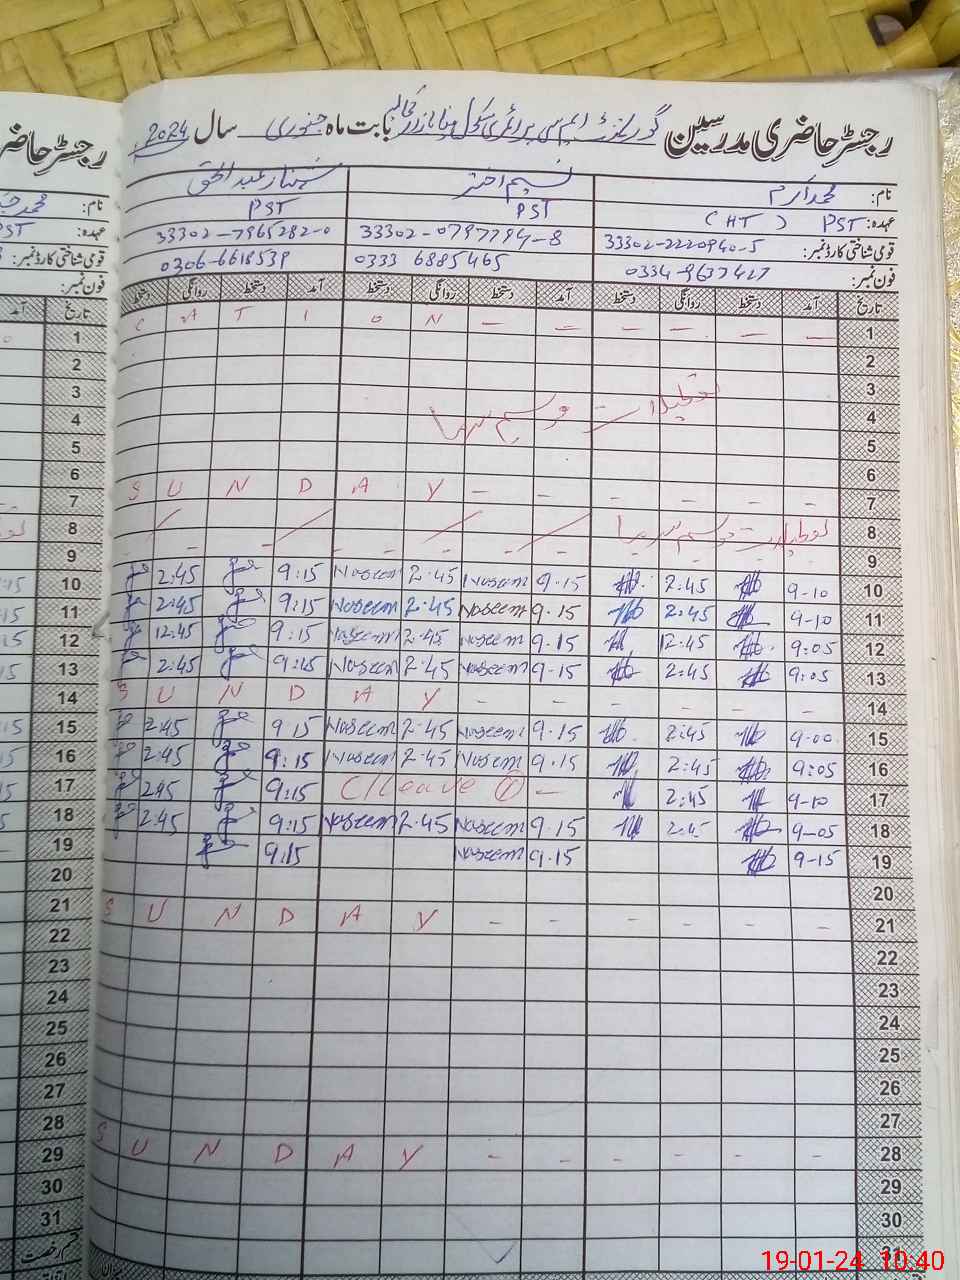 رجسٹر حاضری مدرسین گورنمنٹ ایم سی پرائمری سکول بابت ماہ جنوری سال 2024
نام: محمد اکرم نسیم اختر شہناز عبدالحق
عہدہ: PST (HT) PST PST
قومی شناختی کارڈ نمبر: 33302-2220940-5 33302-0797794-8 33302-7965282-0
فون نمبر: 0334-9637427 0333 6885465 0306-6618539
تاریخ آمد دستخط روانگی دستخط آمد دستخط روانگی دستخط آمد دستخط روانگی دستخط
1 C A T I O N - - - - - -
2
3
تعطیلات موسم سرما
4
5
6
7 S U N D A Y - - - - - -
8 تعطیلات موسم سرما
9
10 2:45 9:15 Naseem 2.45 Naseem 9.15 2:45 9-10
11 2:45 9:15 Naseem 2.45 Naseem 9.15 2:45 9-10
12 12:45 9:15 Naseem 2.45 Naseem 9.15 12:45 9:05
13 2:45 9:15 Naseem 2.45 Naseem 9-15 2:45 9:05
14 S U N D A Y - - - - - -
15 2:45 9 15 Naseem 2.45 Naseem 9.15 2:45 9-00
16 2:45 9:15 Naseem 2.45 Naseem 9.15 2:45 9:05
17 2:45 9:15 C/Leave - 2:45 9-10
18 2:45 9:15 Naseem 2.45 Naseem 9.15 2:45 9-05
19 9:15 Naseem 9.15 9-15
20
21 S U N D A Y - - - - - -
22
23
24
25
26
27
28 S U N D A Y - - - - - -
29
30
31
رجسٹر حاضر
نام:
عہدہ: PST
قومی شناختی کارڈ نمبر:
فون نمبر:
تاریخ آمد
1
2
3
4
5
6
7
8
9
10
11
12
13
14
15
16
17
18
19
20
21
22
23
24
25
26
27
28
29
30
31
19-01-24 10:40